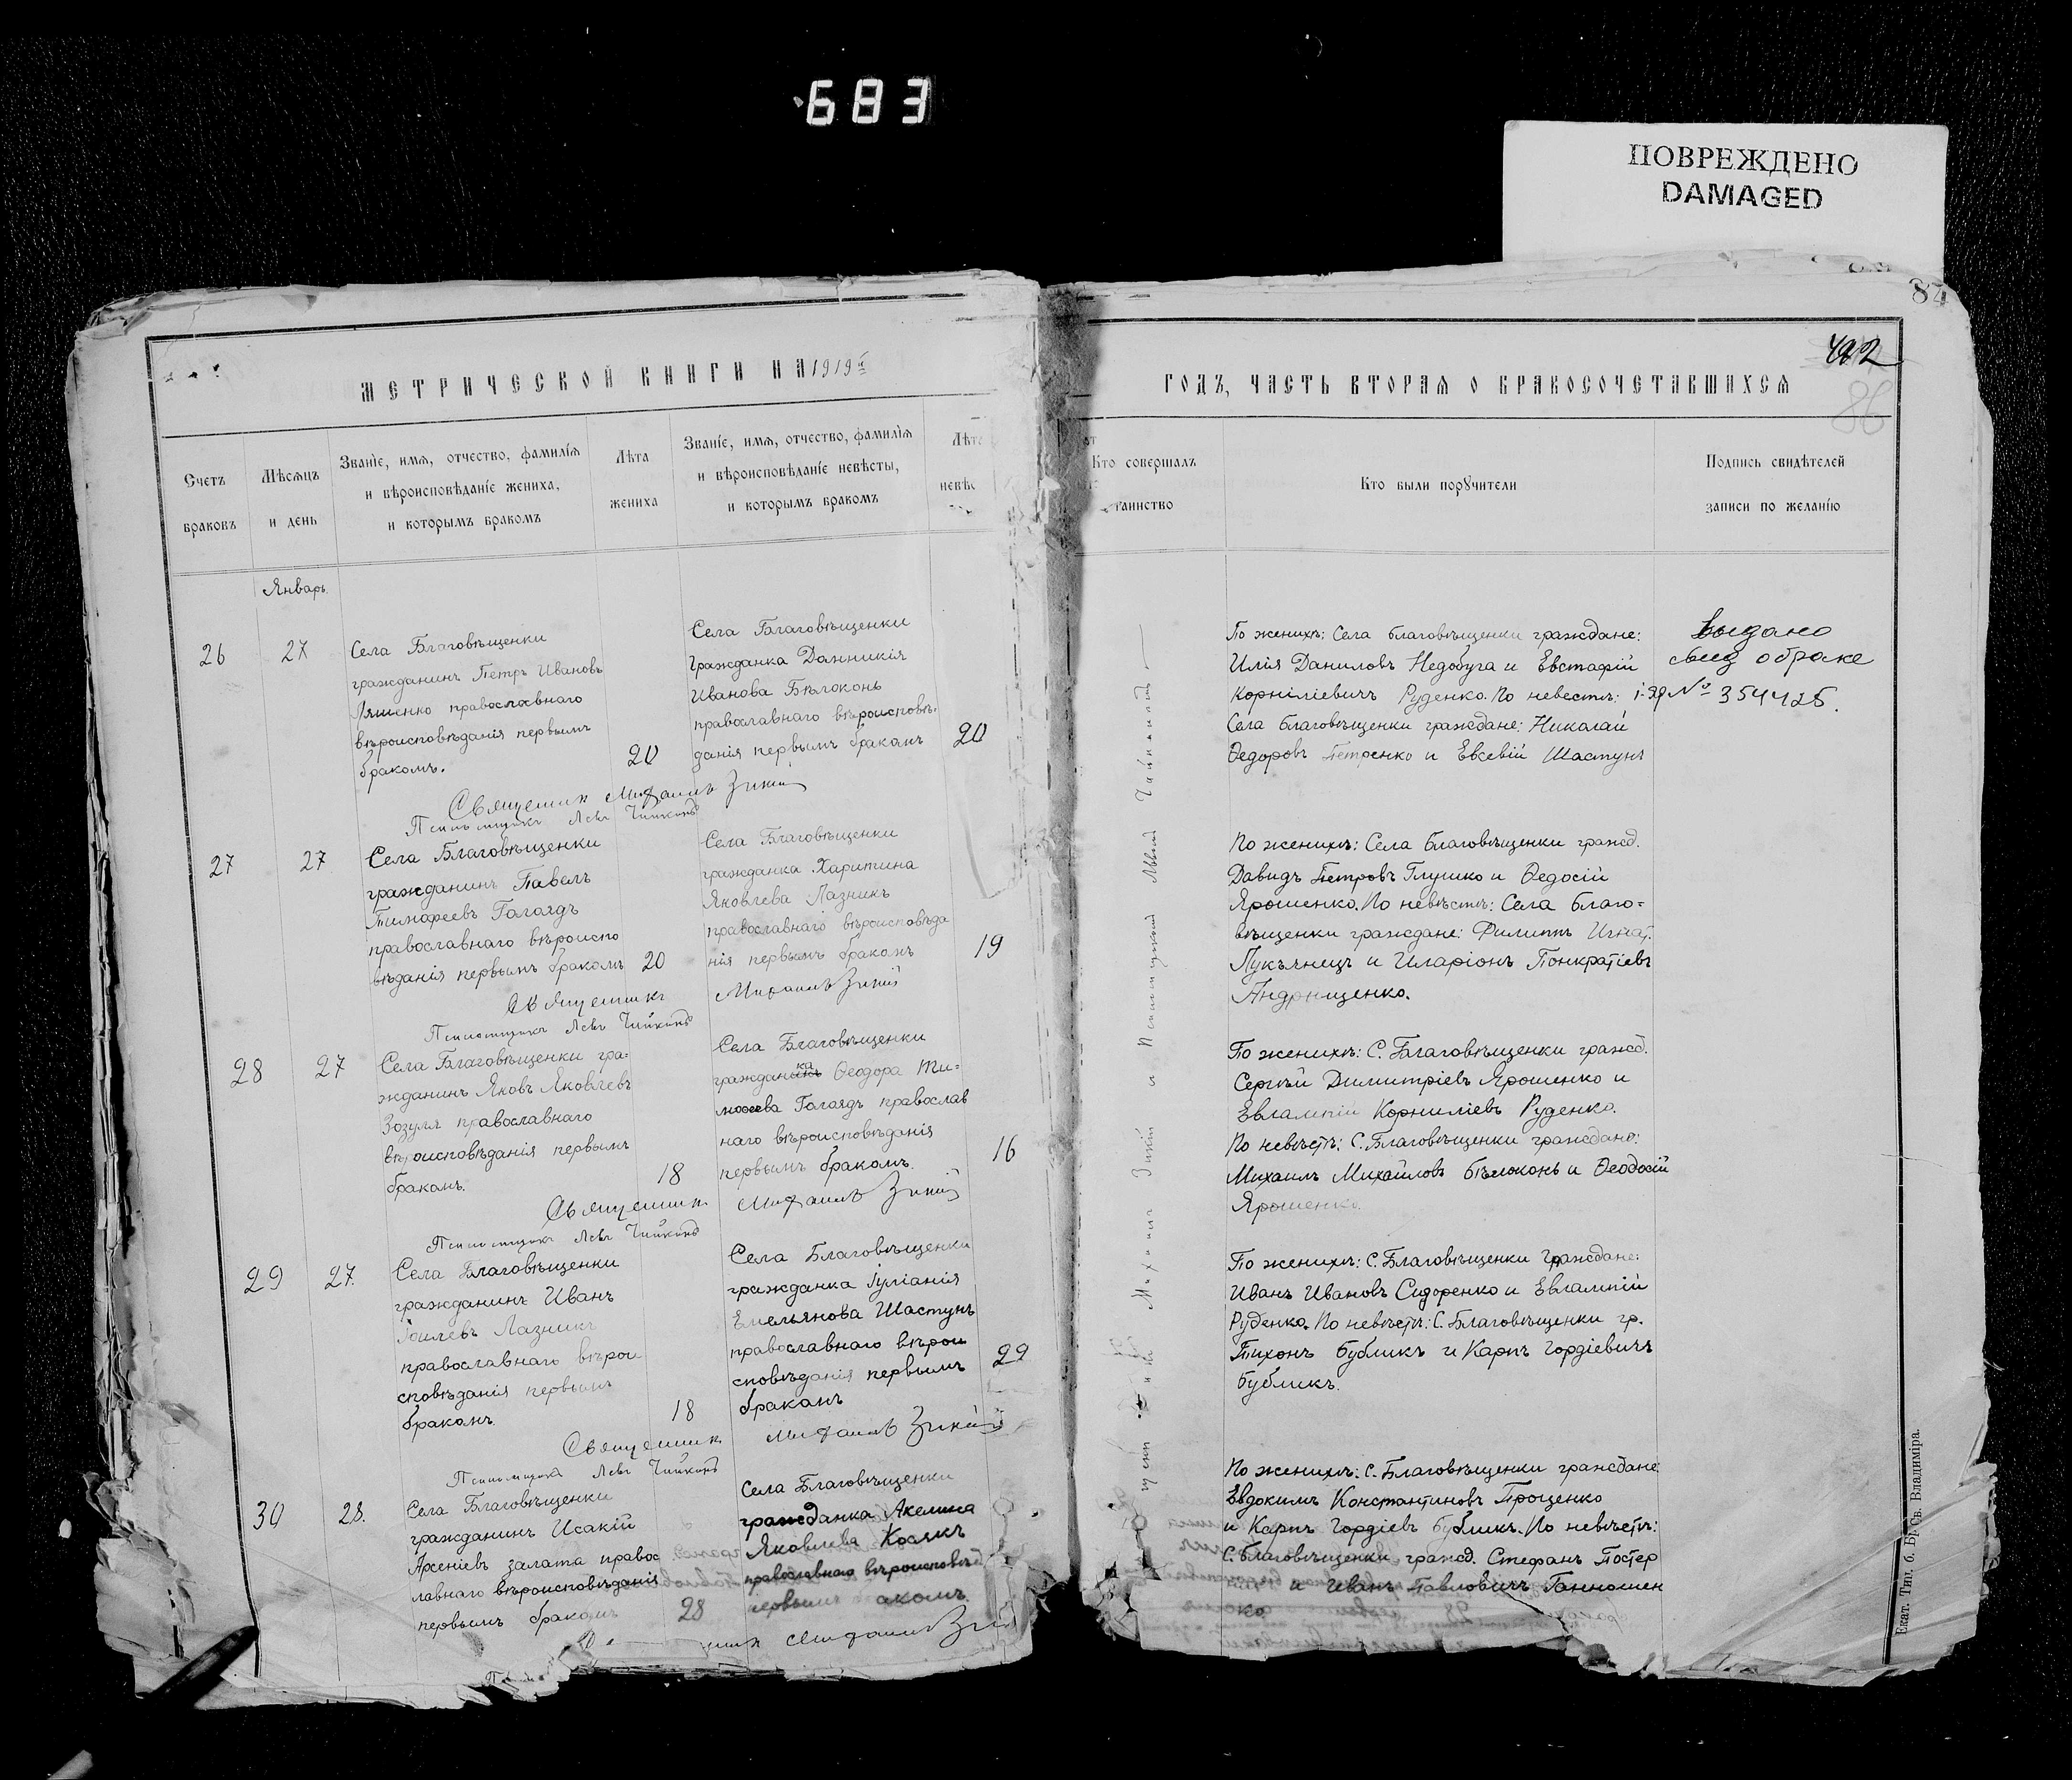 683
ПОВРЕЖДЕНО
DAMAGED
84
492
86
МЕТРИЧЕСКОЙ КНИГИ НА 1919 г.
ГОДЪ, ЧАСТЬ ВТОРАЯ О БРАКОСОЧЕТАВШИХСЯ
Счетъ
браковъ
Мѣсяцъ
и день
Званіе, имя, отчество, фамилія
и вѣроисповѣданіе жениха,
и которымъ бракомъ
Лѣта
жениха
Званіе, имя, отчество, фамилія
и вѣроисповѣданіе невѣсты,
и которымъ бракомъ
Лѣта
невѣс
Кто совершалъ
таинство
Кто были поручители
Подпись свидѣтелей
записи по желанію
Январь
26
27
Села Благовѣщенки
гражданинъ Петръ Ивановъ
Ляшенко православнаго
вѣроисповѣданія первымъ
бракомъ.
20
Села Благовѣщенки
Гражданка Домникія
Иванова Бѣлоконь
православнаго вѣроисповѣ-
данія первымъ бракомъ
20
По женихѣ: Села Благовѣщенки граждане:
Илія Даниловъ Недобуга и Евстафій
Корниліевичъ Руденко. По невестѣ:
Села Благовѣщенки граждане: Николай
Ѳедоровъ Петренко и Евсевій Шастунъ
Выдано
свид о браке
№ 354425.
Священник Михаилъ Зикій
Псаломщикъ Левъ Чайкинъ
27
27
Села Благовѣщенки
гражданинъ Павелъ
Тимофеевъ Голоядъ
православнаго вѣроиспо
вѣданія первымъ бракомъ
20
Села Благовѣщенки
гражданка Харитина
Яковлева Лазникъ
православнаго вѣроисповѣда
нія первымъ бракомъ
19
По женихѣ: Села Благовѣщенки гражд.
Давидъ Петровъ Глушко и Ѳедосій
Ярошенко. По невѣстѣ: Села Благо=
вѣщенки граждане: Филиппъ Игнат.
Лукьянецъ и Иларіонъ Понкратіевъ
Андрющенко.
Священникъ Михаилъ Зикій
Псаломщикъ Левъ Чайкинъ
28
27
Села Благовѣщенки гра=
жданинъ Яковъ Яковлевъ
Зозуля православнаго
вѣроисповѣданія первымъ
бракомъ.
18
Села Благовѣщенки
гражданка Ѳеодора Ти=
моѳеева Голоядъ православ
наго вѣроисповѣданія
первымъ бракомъ.
16
По женихѣ: С. Благовѣщенки гражд.
Сергѣй Димитріевъ Ярошенко и
Евлампій Корниліевъ Руденко.
По невѣстѣ: С. Благовѣщенки граждане:
Михаилъ Михайловъ Бѣлоконь и Ѳеодосій
Ярошенко.
Священник Михаилъ Зикій
Псаломщикъ Левъ Чайкинъ
29
27.
Села Благовѣщенки
гражданинъ Иванъ
Лазникъ
православнаго вѣрои
сповѣданія первымъ
бракомъ
18
Села Благовѣщенки
гражданка Іуліанія
Емельянова Шастунъ
православнаго вѣрои
сповѣданія первымъ
бракомъ
29
По женихѣ: С. Благовѣщенки Граждане:
Иванъ Ивановъ Сидоренко и Евлампій
Руденко. По невѣстѣ: С. Благовѣщенки гр.
Тихонъ Бубликъ и Карпъ Гордіевичъ
Бубликъ.
Священник Михаилъ Зикій
Псаломщикъ Левъ Чайкинъ
30
28.
Села Благовѣщенки
гражданинъ Исакій
Арсеніевъ Залата правос
лавнаго вѣроисповѣданія
первымъ бракомъ
28
Села Благовѣщенки
гражданка Акелина
Яковлева Косякъ
православнаго вѣроисповѣд
первымъ
По женихѣ: С. Благовѣщенки граждане
Евдокимъ Константиновъ Проценко
и Карпъ Гордіевъ Бубликъ. По невѣстѣ:
С. Благовѣщенки гражд. Стефанъ
и Иванъ Павловичъ
ко
Михаилъ Зикій
Екат. Тип. б. Бр. Св. Владиміра.